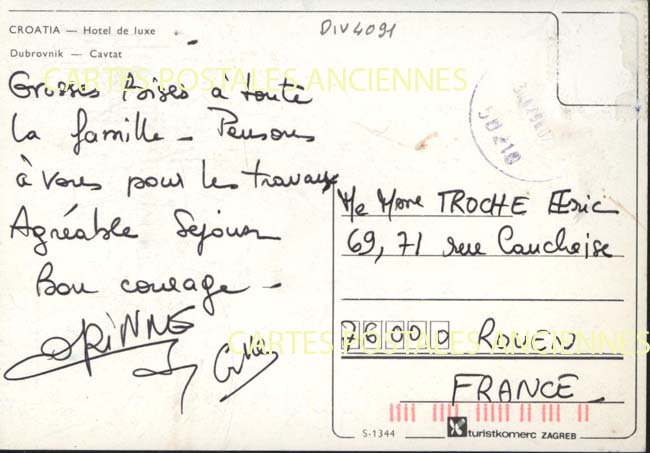 DIV4091
CROATIA — Hotel de luxe
Dubrovnik — Cavtat
CARTES POSTALES ANCIENNES
Grosses Bises à toute
la famille - Pensons
à vous pour les travaux
Agréable Séjour
Bon courage -
CORINNE
58210
M e Mme TROCHE Eric
69, 71 rue Cauchoise
76000 ROUEN
CARTES POSTALES ANCIENNES
FRANCE
S-1344 turistkomerc ZAGREB